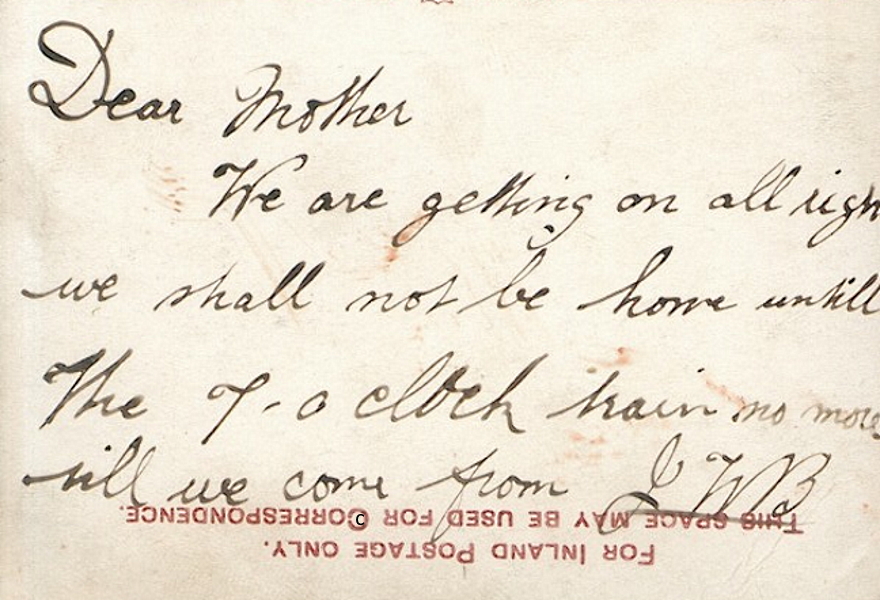 Dear Mother
We are getting on all righ
we shall not be home untill
The 7-o clock train no more
till we come from J W B
THIS SPACE MAY BE USED FOR CORRESPONDENCE.
FOR INLAND POSTAGE ONLY.